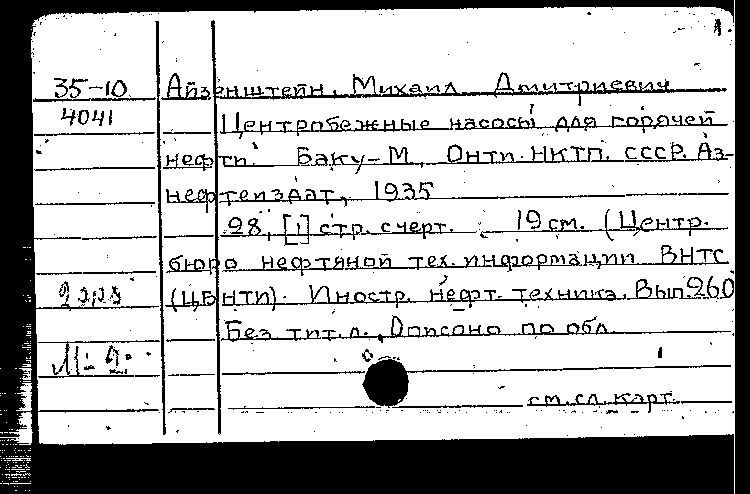 1.
35-10 Айзенштейн, Михаил Дмитриевич
4041 Центробежные насосы для горячей
нефти. Баку-М, Онти. НКТП. СССР. Аз-
нефтеиздат, 1935
28, [1] стр. с черт. 19 см. (Центр.
бюро нефтяной тех. информации ВНТС
2 экз (ЦБНТИ). Иностр. нефт. техника. Вып. 260
Без тит. л., Описано по обл.
см. сл. карт.